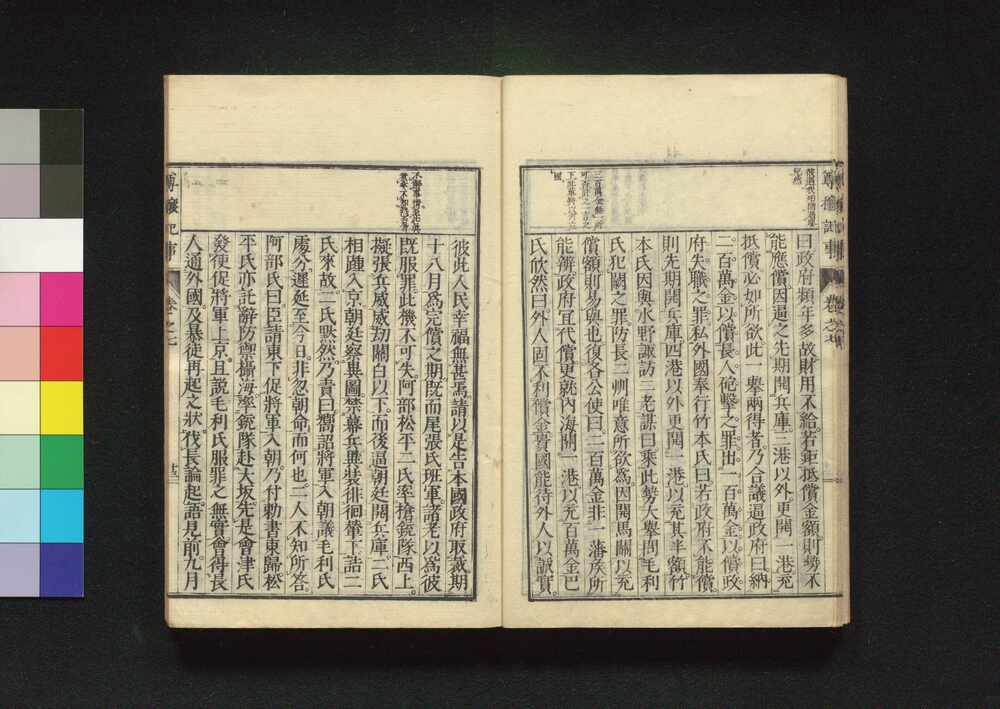 曰政府頻年多故財用不給若鉅抵償金額則勢不
能應償因逼之先期開兵庫二港以外更開一港充
抵償必如所欲此一擧兩得者乃合議逼政府曰納
二百萬金以償長人砲擊之罪出一百萬金以償政
府失職之罪私外國奉行竹本氏曰若政府不能償
則先期開兵庫四港以外更開一港以充其半額竹
本氏因與水野諏訪三老謀曰乘此勢大擧問毛利
氏犯闕之罪防長二州唯意所欲爲因開馬關以充
償額則易與也復各公使曰二百萬金非一藩族所
能辨政府宜代償更就內海開一港以充百萬金巴
氏欣然曰外人固不利償金貴國能待外人以誠實
彼此人民幸福無甚焉請以是告本國政府取裁期
十八月爲完償之期既而尾張氏班軍諸老以爲彼
既服罪此機不可失阿部松平二氏率槍銃隊西上
擬張兵威威劫關白以下而後逼朝廷開兵庫二氏
相踵入京朝廷察異圖禁幕兵異裝徘徊輦下詰二
氏來故二氏默然乃責曰嚮詔將軍入朝議毛利氏
處分遲延至今日非忽朝命而何也二人不知所答
阿部氏曰臣請東下促將軍入朝乃付勅書東歸松
平氏亦託辭防禦攝海率銃隊赴大坂先是會津氏
發使促將軍上京且說毛利氏服罪之無實會得長
人通外國及暴徒再起之狀伐長論起語見前九月
卷之七